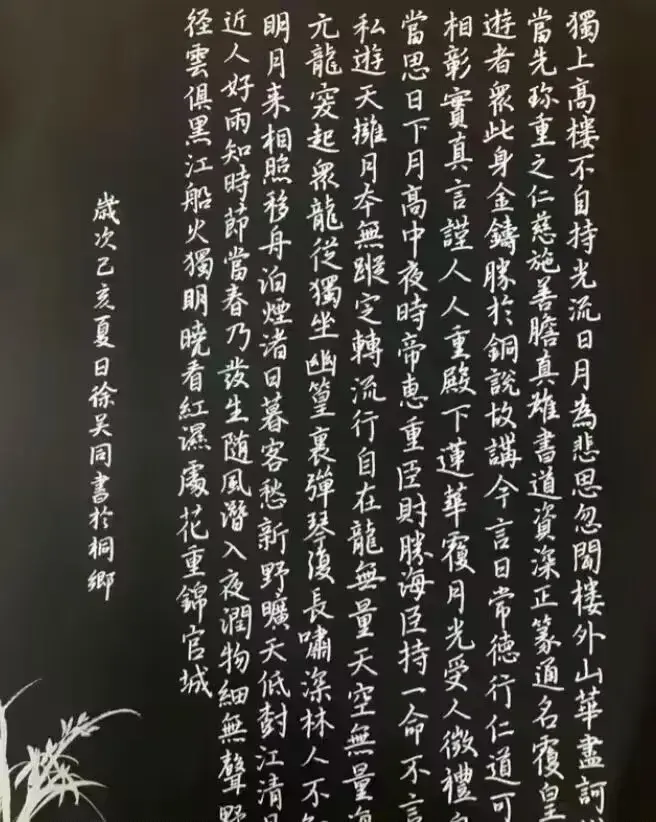 獨上高楼不自持光流日月為悲思忽聞楼外山華盡訶
當先珎重之仁慈施善膽真雄書道資深正篆通名覆皇
遊者衆此身金鑄勝於銅說故講今言日常德行仁道可
相彰實真言謹人人重殿下蓮華覆月光受人微禮
當思日下月高中夜時帝恵重臣財勝海臣持一命不言
私遊天擁月本無蹤定轉流行自在龍無量天空無量海
亢龍突起衆龍從獨坐幽篁裏彈琴復長嘯深林人不知
明月来相照移舟泊煙渚日暮客愁新野曠天低尌江清月
近人好雨知時節當春乃發生随風潛入夜潤物細無聲野
径雲俱黒江船火獨明曉看紅濕處花重錦官城
歳次己亥夏日徐吴同書於桐鄉